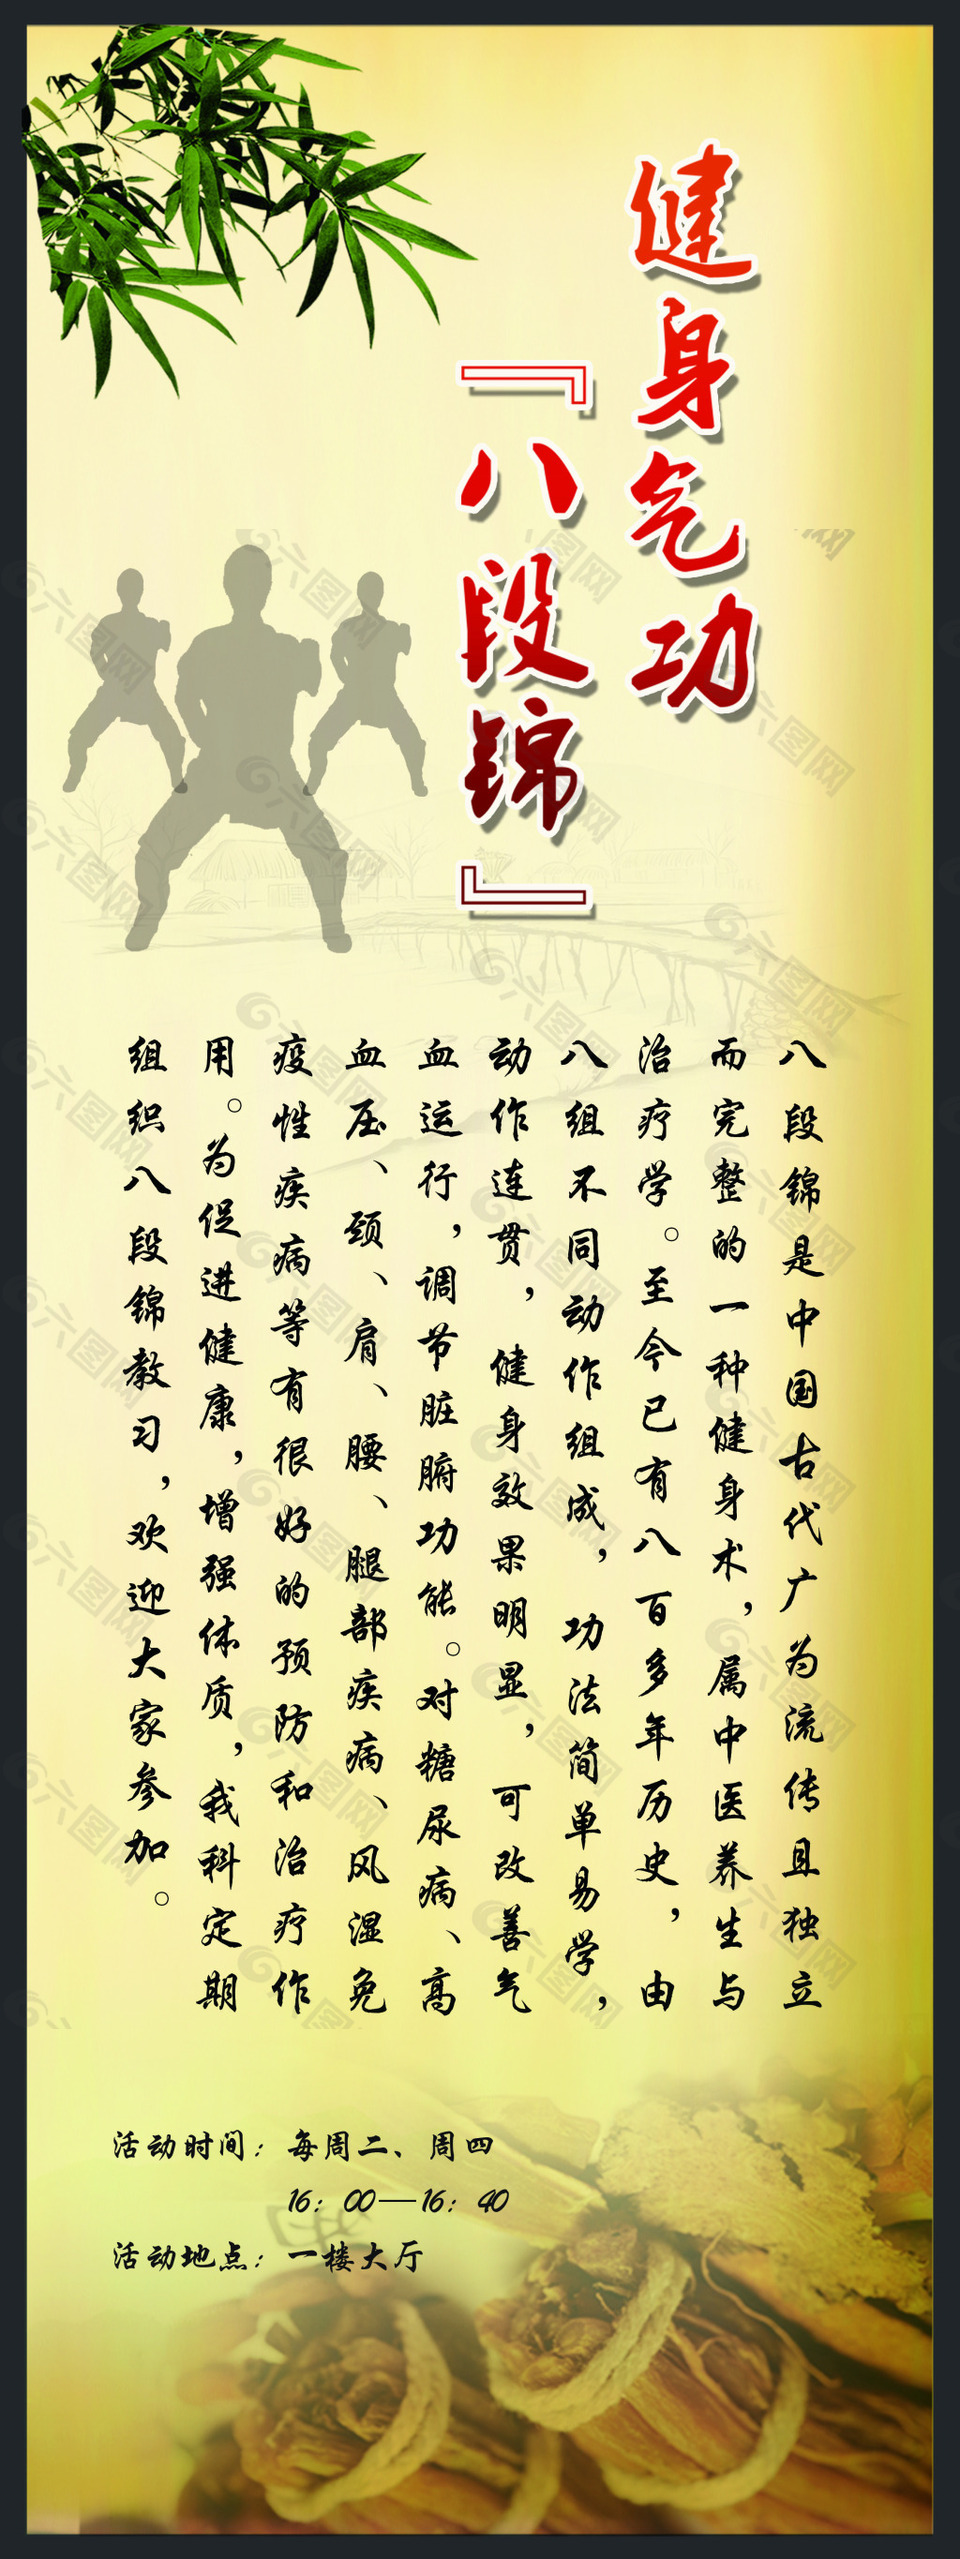 健身气功
『八段锦』
八段锦是中国古代广为流传且独立
而完整的一种健身术，属中医养生与
治疗学。至今已有八百多年历史，由
八组不同动作组成，功法简单易学，
动作连贯，健身效果明显，可改善气
血运行，调节脏腑功能。对糖尿病、高
血压、颈、肩、腰、腿部疾病、风湿免
疫性疾病等有很好的预防和治疗作
用。为促进健康，增强体质，我科定期
组织八段锦教习，欢迎大家参加。
活动时间：每周二、周四
16：00—16：40
活动地点：一楼大厅
六图网